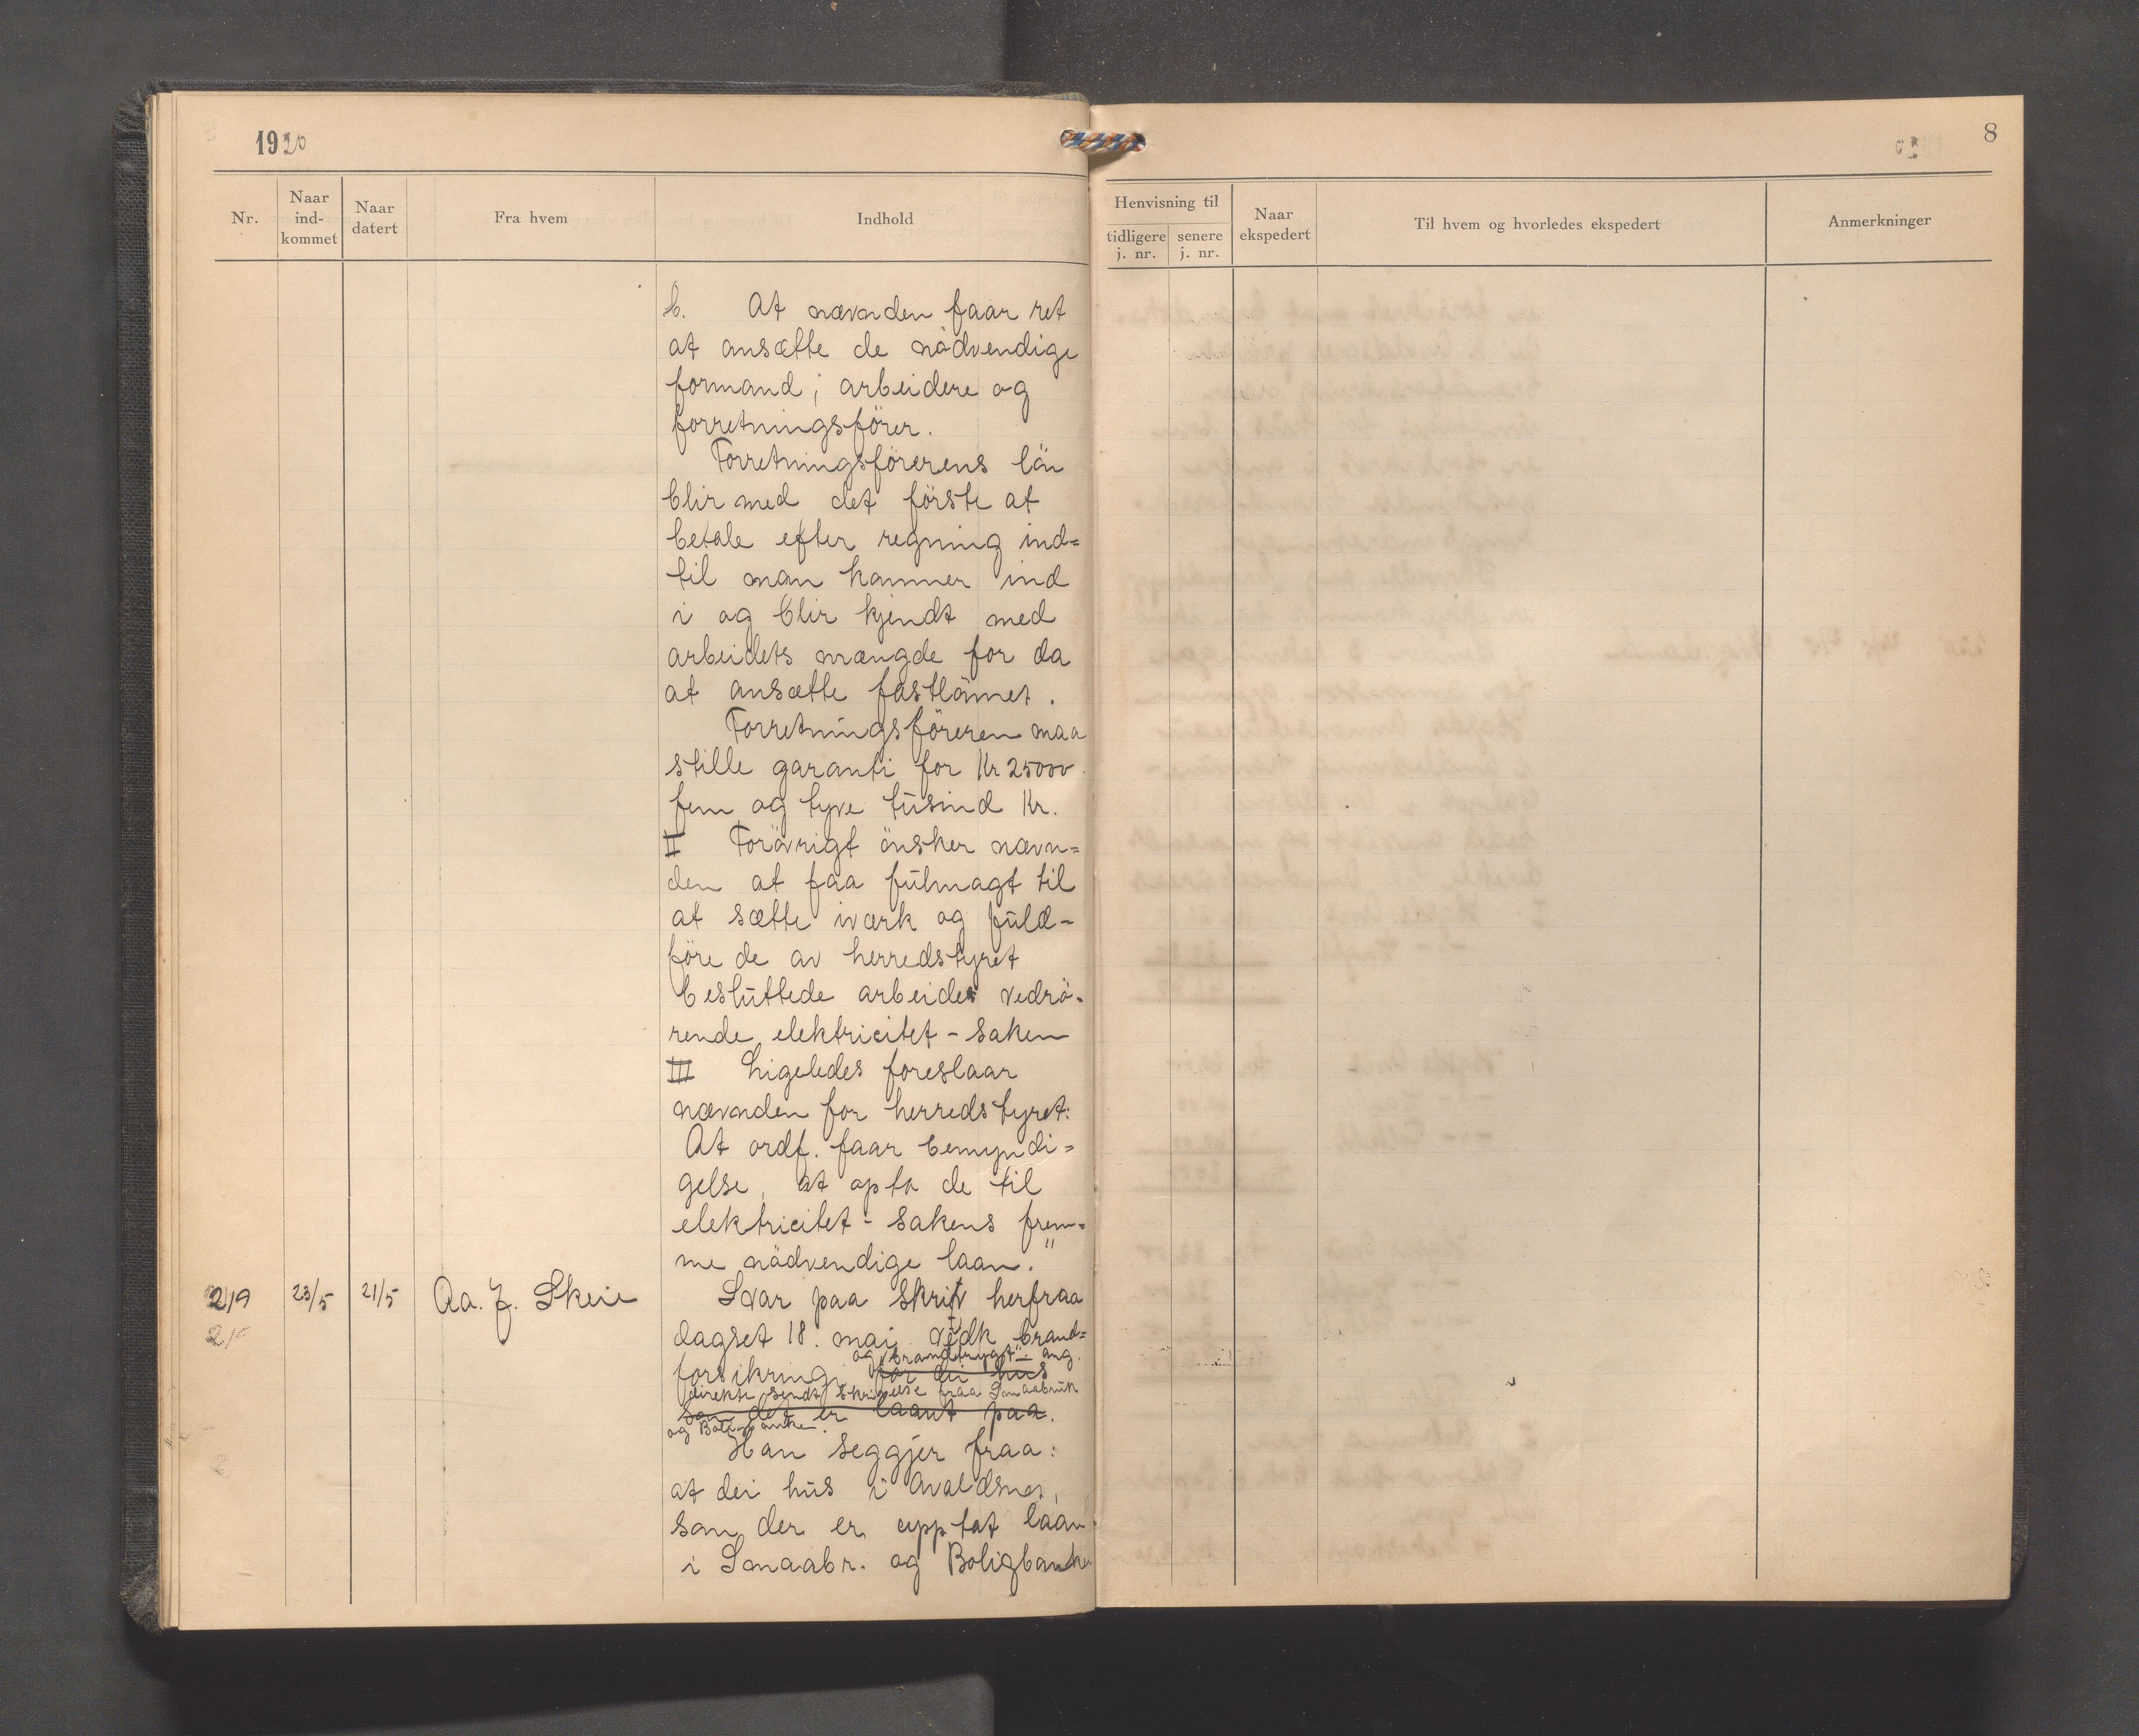 1920
Nr.
Naar ind-kommet
Naar datert
Fra hvem
Indhold
8
Henvisning til
tidligere j. nr.
senere j. nr.
Naar ekspedert
Til hvem og hvorledes ekspedert
Anmerkninger
b. At nævnden faar ret
at ansætte de nödvendige
formand; arbeidere og
forretningsförer.
Forretningsförerens lön
blir med det förste at
betale efter regning ind=
til man kommer ind
i og blir kjendt med
arbeidets mængde for da
at ansætte fastlönnet.
Forretningsföreren maa
stille garanti for Kr 25000
fem og tyve tusind Kr.
II Forövrigt önsker nævn=
den at faa fulmagt til
at sætte iværk og fuld-
före de av herredstyret
besluttede arbeider vedrö-
rende elektricitet-saken
III Ligeledes foreslaar
nævnden for herredstyret:
At ordf. faar bemyndi=
gelse at opta de til
elektricitet-sakens frem=
me nödvendige laan."
219 23/5 21/5 Aa. J. Skeie Svar paa skriv herfraa
dagset 18. mai vedk. brand=
og "brandtrygt" ang.
forsikring for dei hus
direkte sendt skrivelse fraa Smaabruk
som det er laant paa.
og Boligbanken.
Han seggjer fraa:
at dei hus i Avaldsnes,
som der er upptat laan
i Smaabr. og Boligbanken